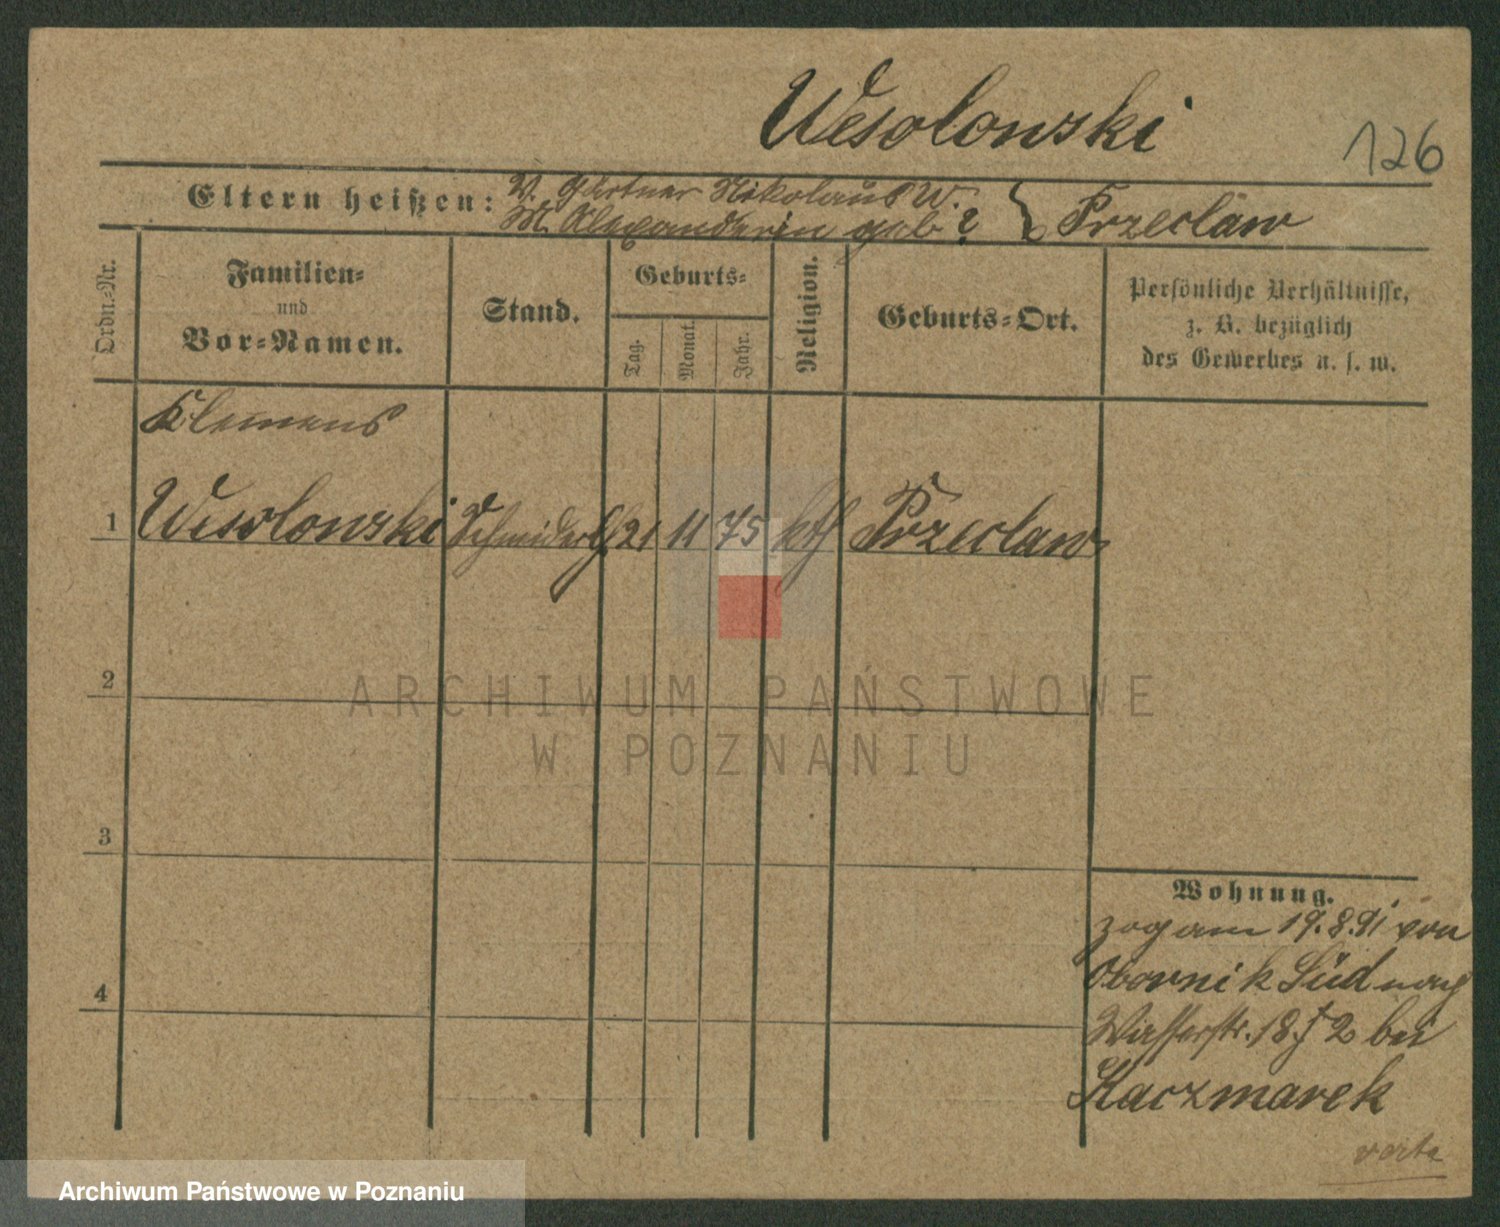 Wesolowski
126
Eltern heißen: V. Gärtner Nikolaus W.
M. Alexanderin geb. ? Przeclaw
Ordn.-Nr.
Familien-
und
Vor-Namen.
Stand.
Geburts-
Tag.
Monat.
Jahr.
Religion.
Geburts-Ort.
Persönliche Verhältnisse,
z. B. bezüglich
des Gewerbes u. s. w.
Klemens
1 Wesolowski Schneiderlg 21 11 75 kth Przeclaw
2
3
4
Wohnung.
zog am 19.8.91 von
Obornik Süd nach
Wasserstr. 18 2 bei
Kaczmarek
verte
ARCHIWUM PAŃSTWOWE
W POZNANIU
Archiwum Państwowe w Poznaniu